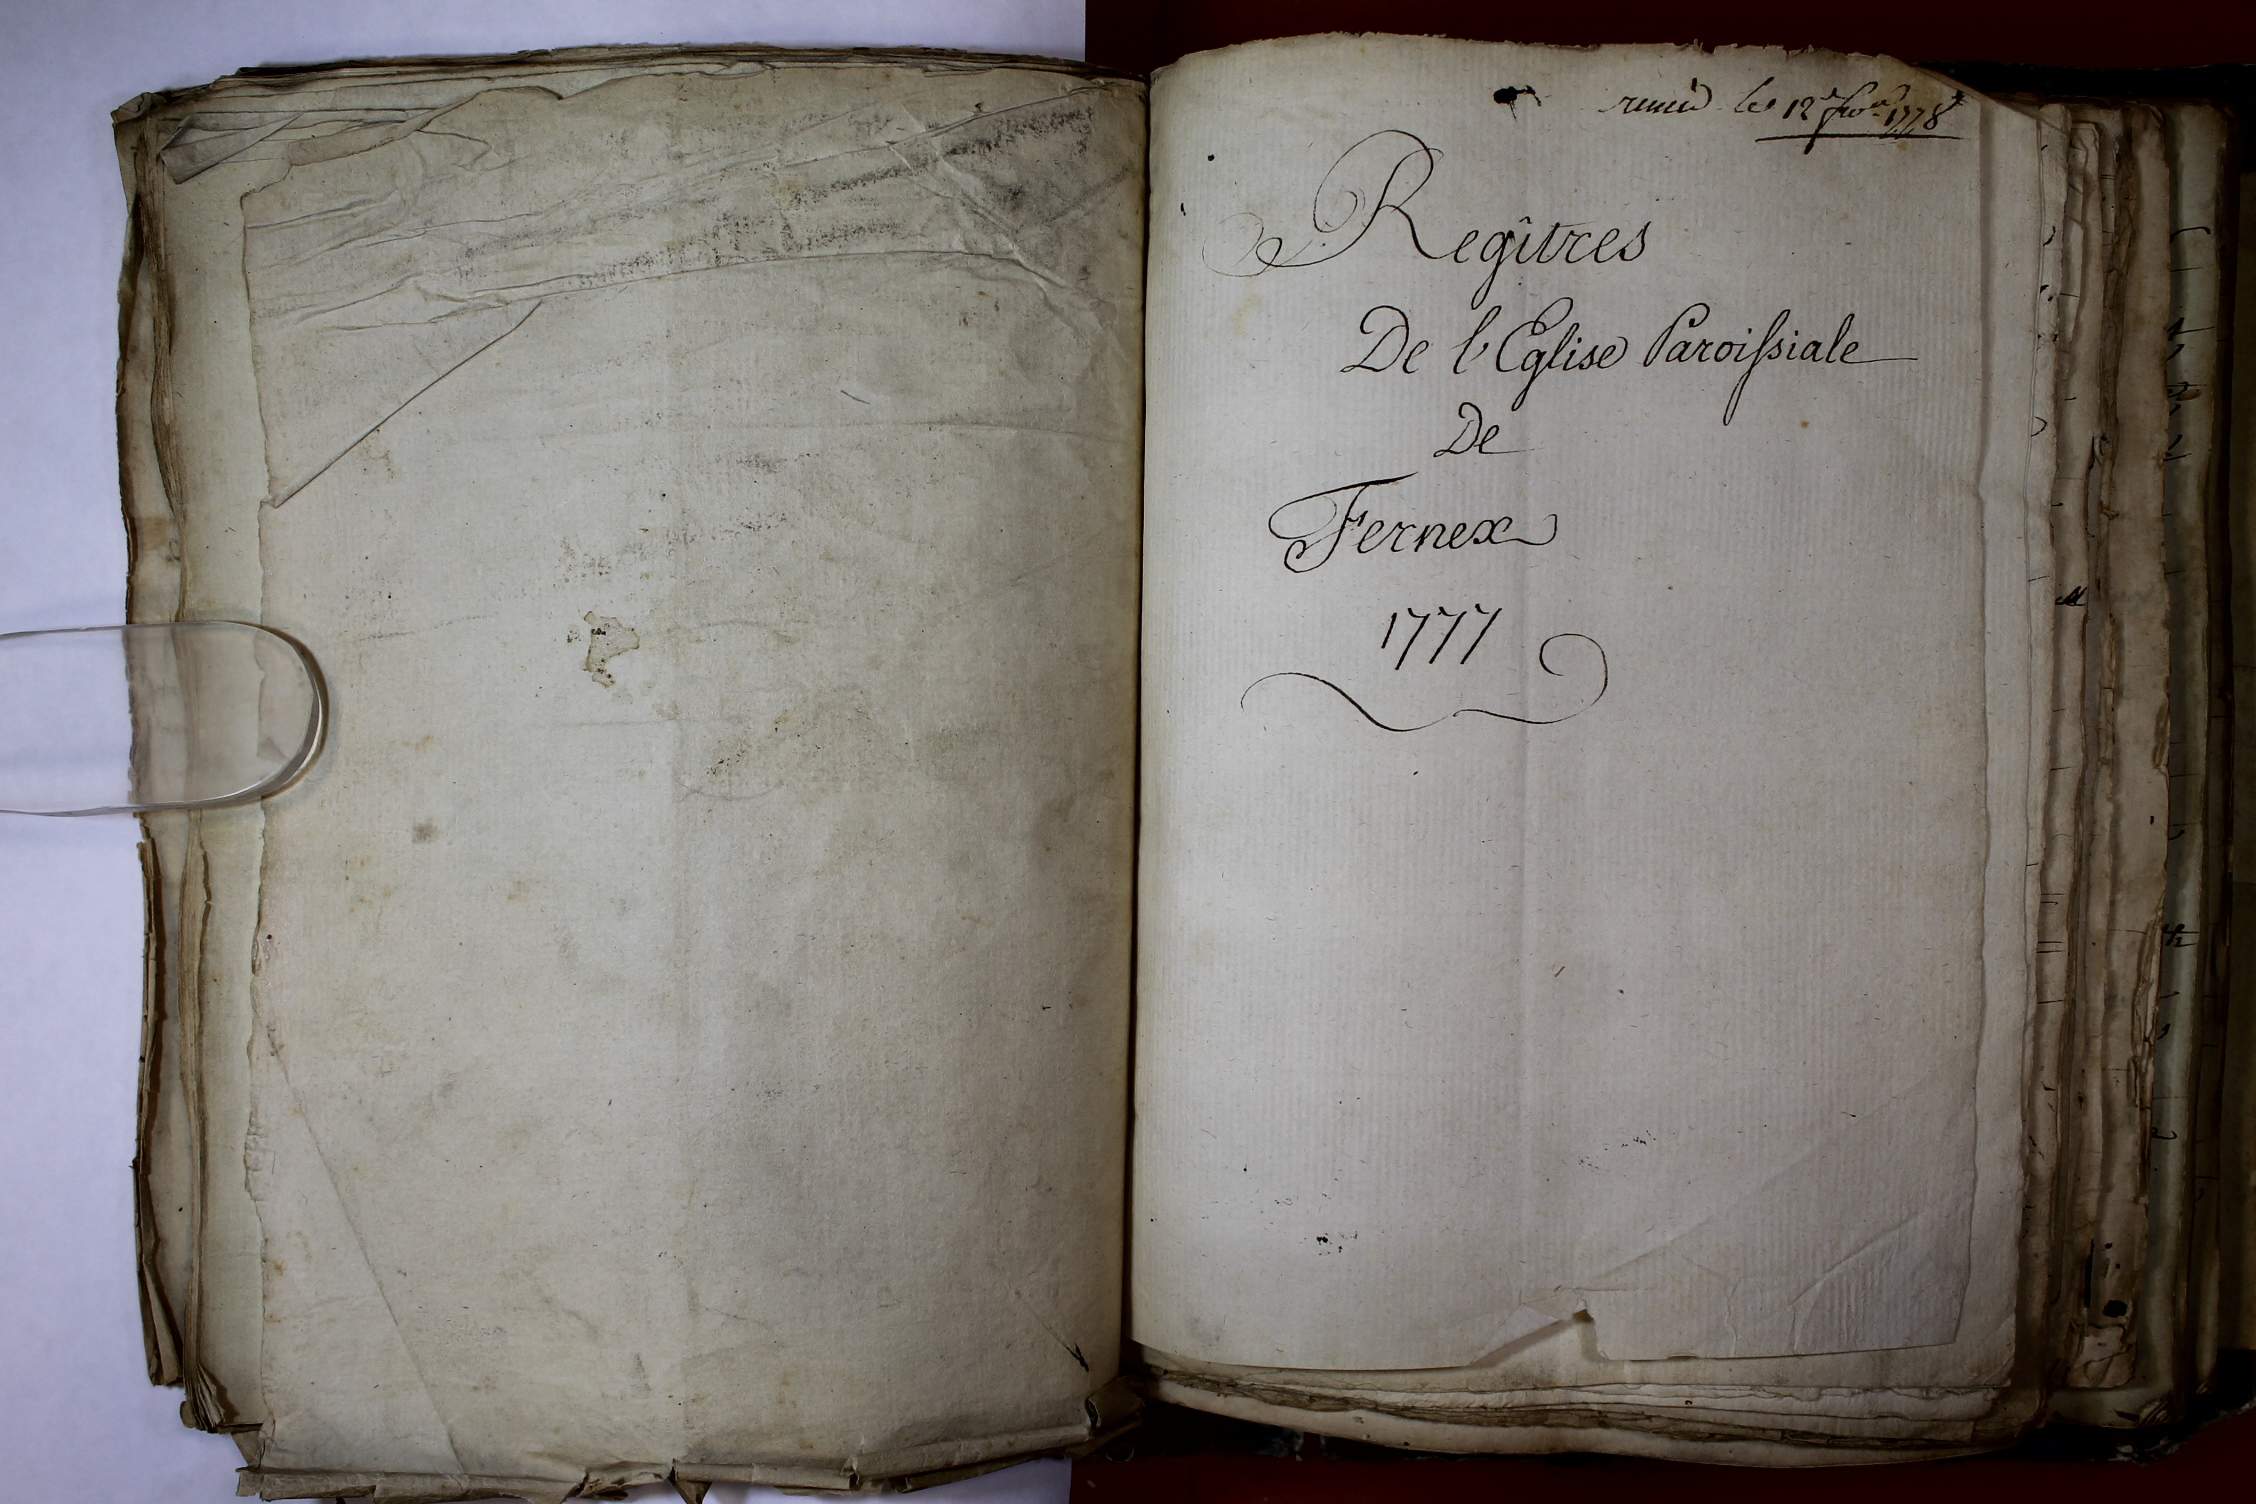 remis le 12e fevr 1778
Regîtres
De l'Eglise Paroissiale
De
Fernex
1777